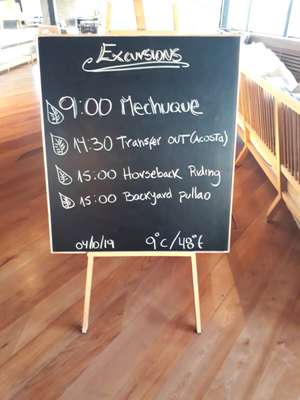 Excursions
9:00 Mechuque
14:30 Transfer OUT (Acosta)
15:00 Horseback Riding
15:00 Backyard pullao
04/10/19 9°C/48°F